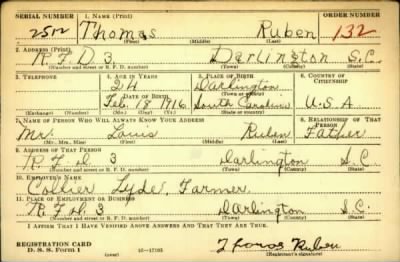 SERIAL NUMBER 1. NAME (Print) ORDER NUMBER
2512 Thomas Ruben 132
(First) (Middle) (Last)
2. ADDRESS (Print)
R.F.D. 3 Darlington S.C.
(Number and street or R. F. D. number) (Town) (County) (State)
3. TELEPHONE 4. AGE IN YEARS 5. PLACE OF BIRTH 6. COUNTRY OF CITIZENSHIP
24 Darlington
DATE OF BIRTH (Town or county)
Feb. 18 1916 South Carolina U.S.A
(Exchange) (Number) (Mo.) (Day) (Yr.) (State or country)
7. NAME OF PERSON WHO WILL ALWAYS KNOW YOUR ADDRESS 8. RELATIONSHIP OF THAT PERSON
Mr. Louis Ruben Father
(Mr., Mrs., Miss) (First) (Middle) (Last)
9. ADDRESS OF THAT PERSON
R.F.D. 3 Darlington S.C.
(Number and street or R. F. D. number) (Town) (County) (State)
10. EMPLOYER'S NAME
Collier Lyde, Farmer.
11. PLACE OF EMPLOYMENT OR BUSINESS
R.F.D. 3 Darlington S.C.
(Number and street or R. F. D. number) (Town) (County) (State)
I AFFIRM THAT I HAVE VERIFIED ABOVE ANSWERS AND THAT THEY ARE TRUE.
REGISTRATION CARD
D. S. S. Form 1 (over) Ruben
(Registrant's signature)